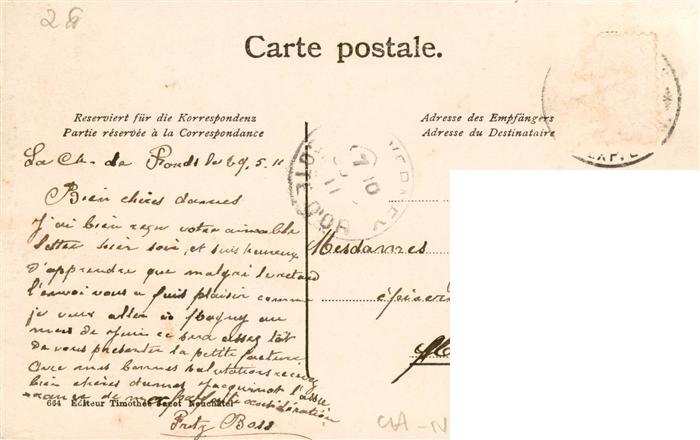 28
Carte postale.
Reserviert für die Korrespondenz
Partie réservée à la Correspondance
Adresse des Empfängers
Adresse du Destinataire
La Ch. de Fonds le 29.5.11
Bien chères dames
J'ai bien reçu votre aimable
lettre hier soir, et suis heureux
d'apprendre que malgré le retard
l'envoi vous a fait plaisir comme
je veux aller à Magny au
mois de Juin ce sera assez tôt
de vous présenter la petite facture
Avec mes bonnes salutations recevez
bien chères dames Jacquinot l'assu
rance de ma parfaite considération
Fritz Boss
664 Editeur Timothée Jacot Neuchâtel
Mesdames
épicer
CÔTE D'OR
EXP. L